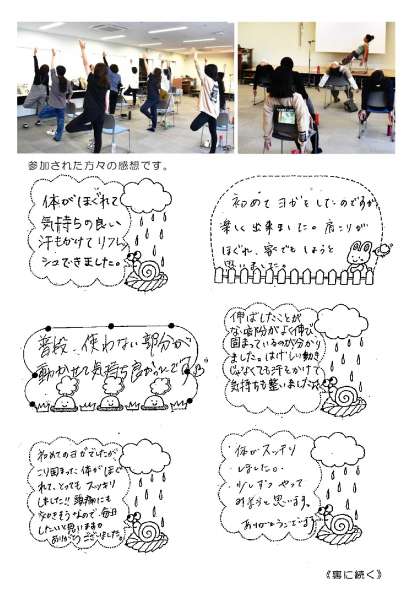 参加された方々の感想です。
体がほぐれて
気持ちの良い
汗もかけてリフレッ
シュできました。
初めてヨガをしたのですが
楽しく出来ました。肩こりが
ほぐれ、家でもしようと
思いました。
普段、使わない部分が
動かせて気持ち良かったです
伸ばしたことが
ない部分がよく伸び
固まっているのが分かり
ました。はげしい動き
じゃなくても汗をかけて
気持ちも整いました
初めてのヨガでしたが、
こり固まった体がほぐ
れて、とってもスッキリ
しました!!頭痛にも
効きそうなので、毎日
したいと思います
ありがとうございました。
体がスッキリ
しました。
少しずつやって
みようと思います。
ありがとうございます
《裏に続く》